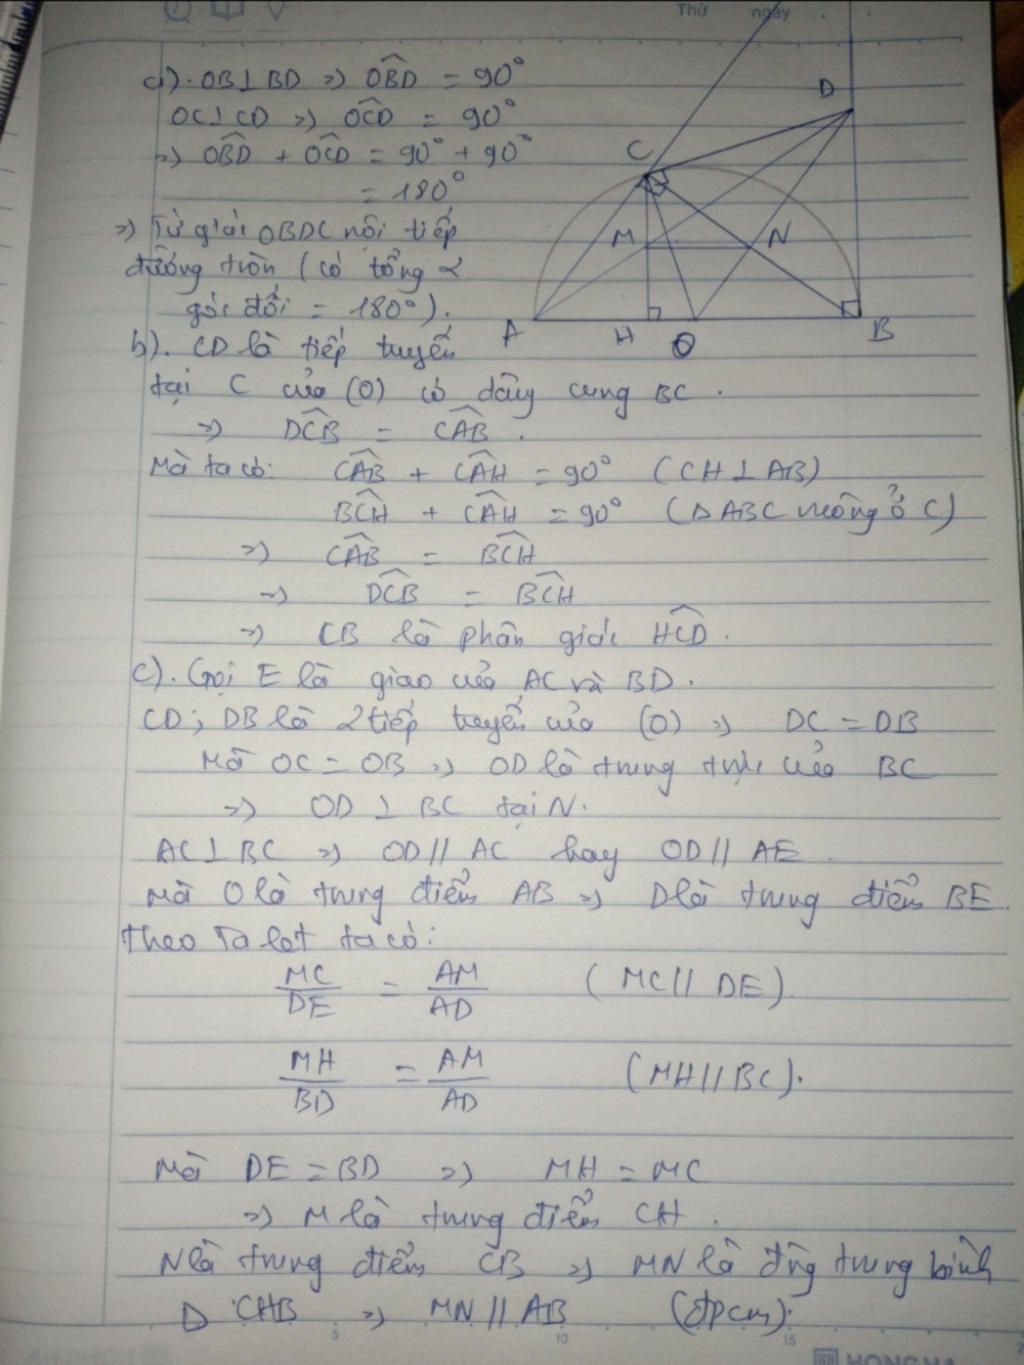 Thứ ngày
a). OB⊥BD => OBD̂ = 90°
OC⊥CD => OCD̂ = 90°
=> OBD̂ + OCD̂ = 90° + 90°
= 180°
=> Tứ giác OBDC nội tiếp
đường tròn (có tổng 2
góc đối = 180°).
D
C
M
N
A
H
O
B
b). CD là tiếp tuyến
tại C của (O) có dây cung BC.
=> DCB̂ = CAB̂.
Mà ta có: CAB̂ + CAĤ = 90° (CH⊥AB)
BCĤ + CAĤ = 90° (Δ ABC vuông ở C)
=> CAB̂ = BCĤ
=> DCB̂ = BCĤ
=> CB là phân giác HCD̂.
c). Gọi E là giao của AC và BD.
CD; DB là 2 tiếp tuyến của (O) => DC = DB
Mà OC = OB => OD là trung trực của BC
=> OD ⊥ BC tại N.
AC⊥BC => OD // AC hay OD // AE.
Mà O là trung điểm AB => D là trung điểm BE.
Theo Ta let ta có:
MC/DE = AM/AD (MC // DE)
MH/BD = AM/AD (MH // BC).
Mà DE = BD => MH = MC
=> M là trung điểm CH.
N là trung điểm CB => MN là đng trung bình
Δ CHB => MN // AB (đpcm).
5 10 15
HONG HA